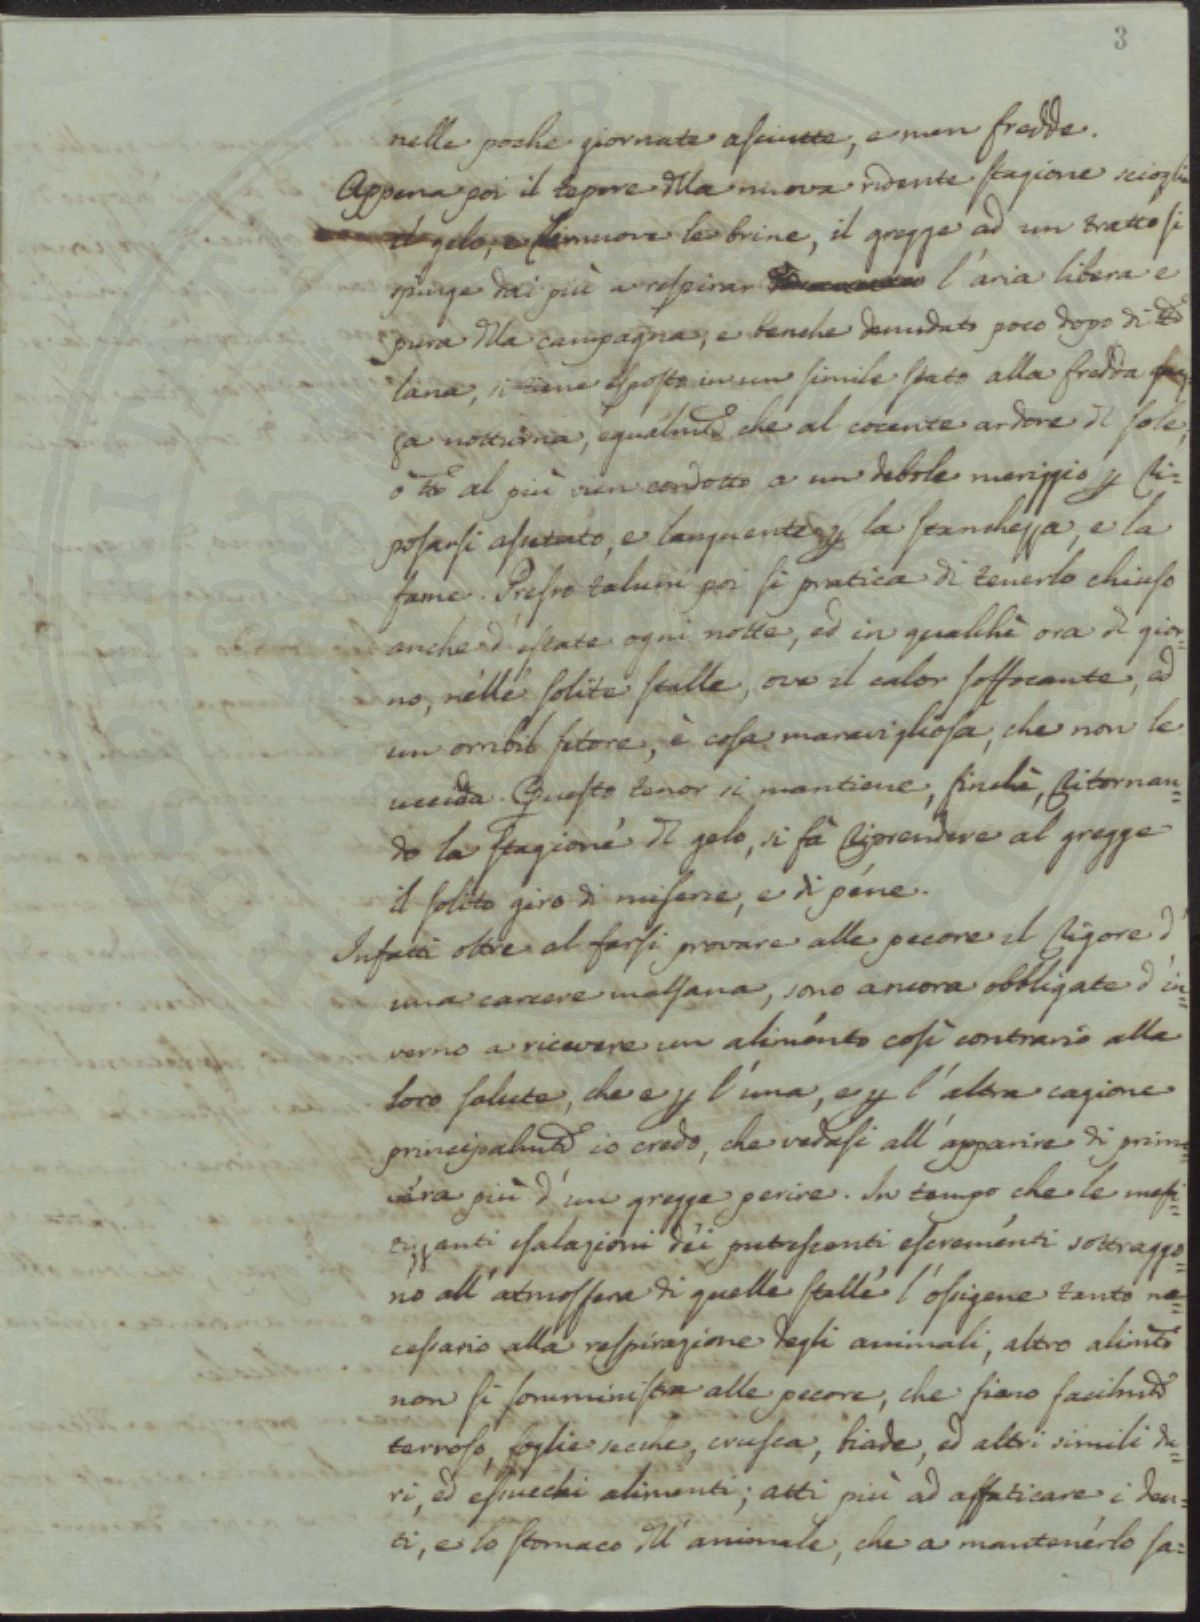 3
nelle poche giornate asciutte, e men fredde.
Appena poi il tepore dlla nuova ridente stagione sciogli
il gelo, e rimuove le brine, il gregge ad un tratto si
spinge dai più a respirar l'aria libera e
pura dlla campagna; e benche denudato poco dopo di
lana, si tiene esposto in un simile stato alla fredda
za notturna, egualmte che al cocente ardore dl sole,
ò tto al più vien condotto a un debole meriggio p ri=
posarsi assetato, e languente p la stanchezza, e la
fame. Presso taluni poi si pratica di tenerlo chiuso
anche d'estate ogni notte, ed in qualche ora dl gior=
no, nelle solite stalle, ove il calor soffocante, ed
un orribil fetore, è cosa maravigliosa, che non le
uccida. Questo tenor si mantiene, finchè, ritornan=
do la stagione dl gelo, si fà riprendere al gregge
il solito giro di miserie, e di pene.
Infatti oltre al farsi provare alle pecore il rigore d'
una carcere malsana, sono ancora obbligate d'in=
verno a ricevere un alimento così contrario alla
loro salute, che e p l'una, e p l'altra cagione
principalmte io credo, che vedasi all'apparire di prima=
vera più d'un gregge perire. In tempo che le mefi=
tizzanti esalazioni dei putrescenti escrementi sottraggo=
no all'atmosfera di quelle stalle l'ossigene tanto ne=
cessario alla respirazione degli animali, altro alimto
non si somministra alle pecore, che fieno facilmte
terroso, foglie secche, crusca, biade, ed altri simili du=
ri, ed essuechi alimenti; atti più ad affaticare i den=
ti, e lo stomaco dll'animale, che a mantenerlo sa=